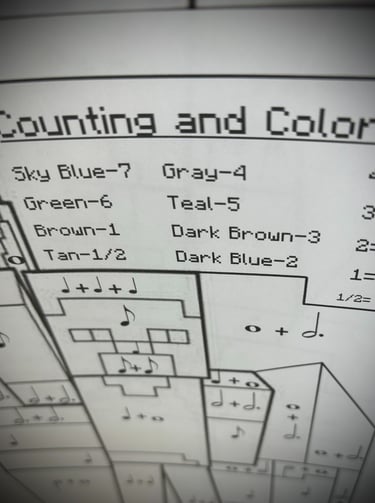 Counting and Color
Sky Blue-7 Gray-4
Green-6 Teal-5 3
Brown-1 Dark Brown-3 2=
Tan-1/2 Dark Blue-2 1=
1/2=